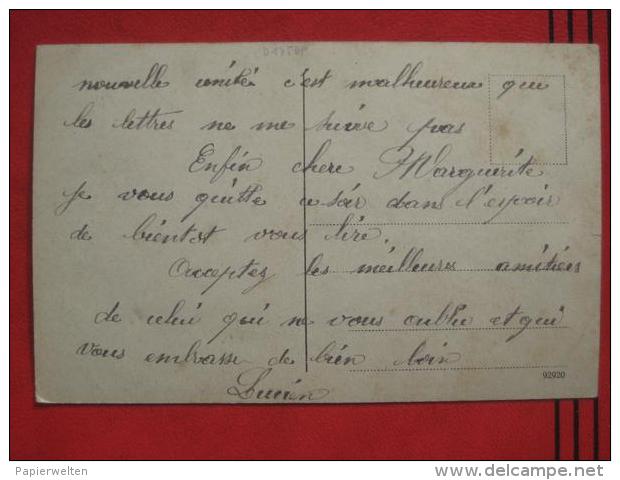 nouvelle unité c'est malheureux que
les lettres ne me suive pas
Enfin chere Marguerite
Je vous quitte ce soir dans l'espoir
de bientot vous lire.
Acceptez les meilleures amitiées
de celui qui ne vous oublie et qui
vous embrasse de bien loin
Lucien
92920
Papierwelten
www.delcampe.net